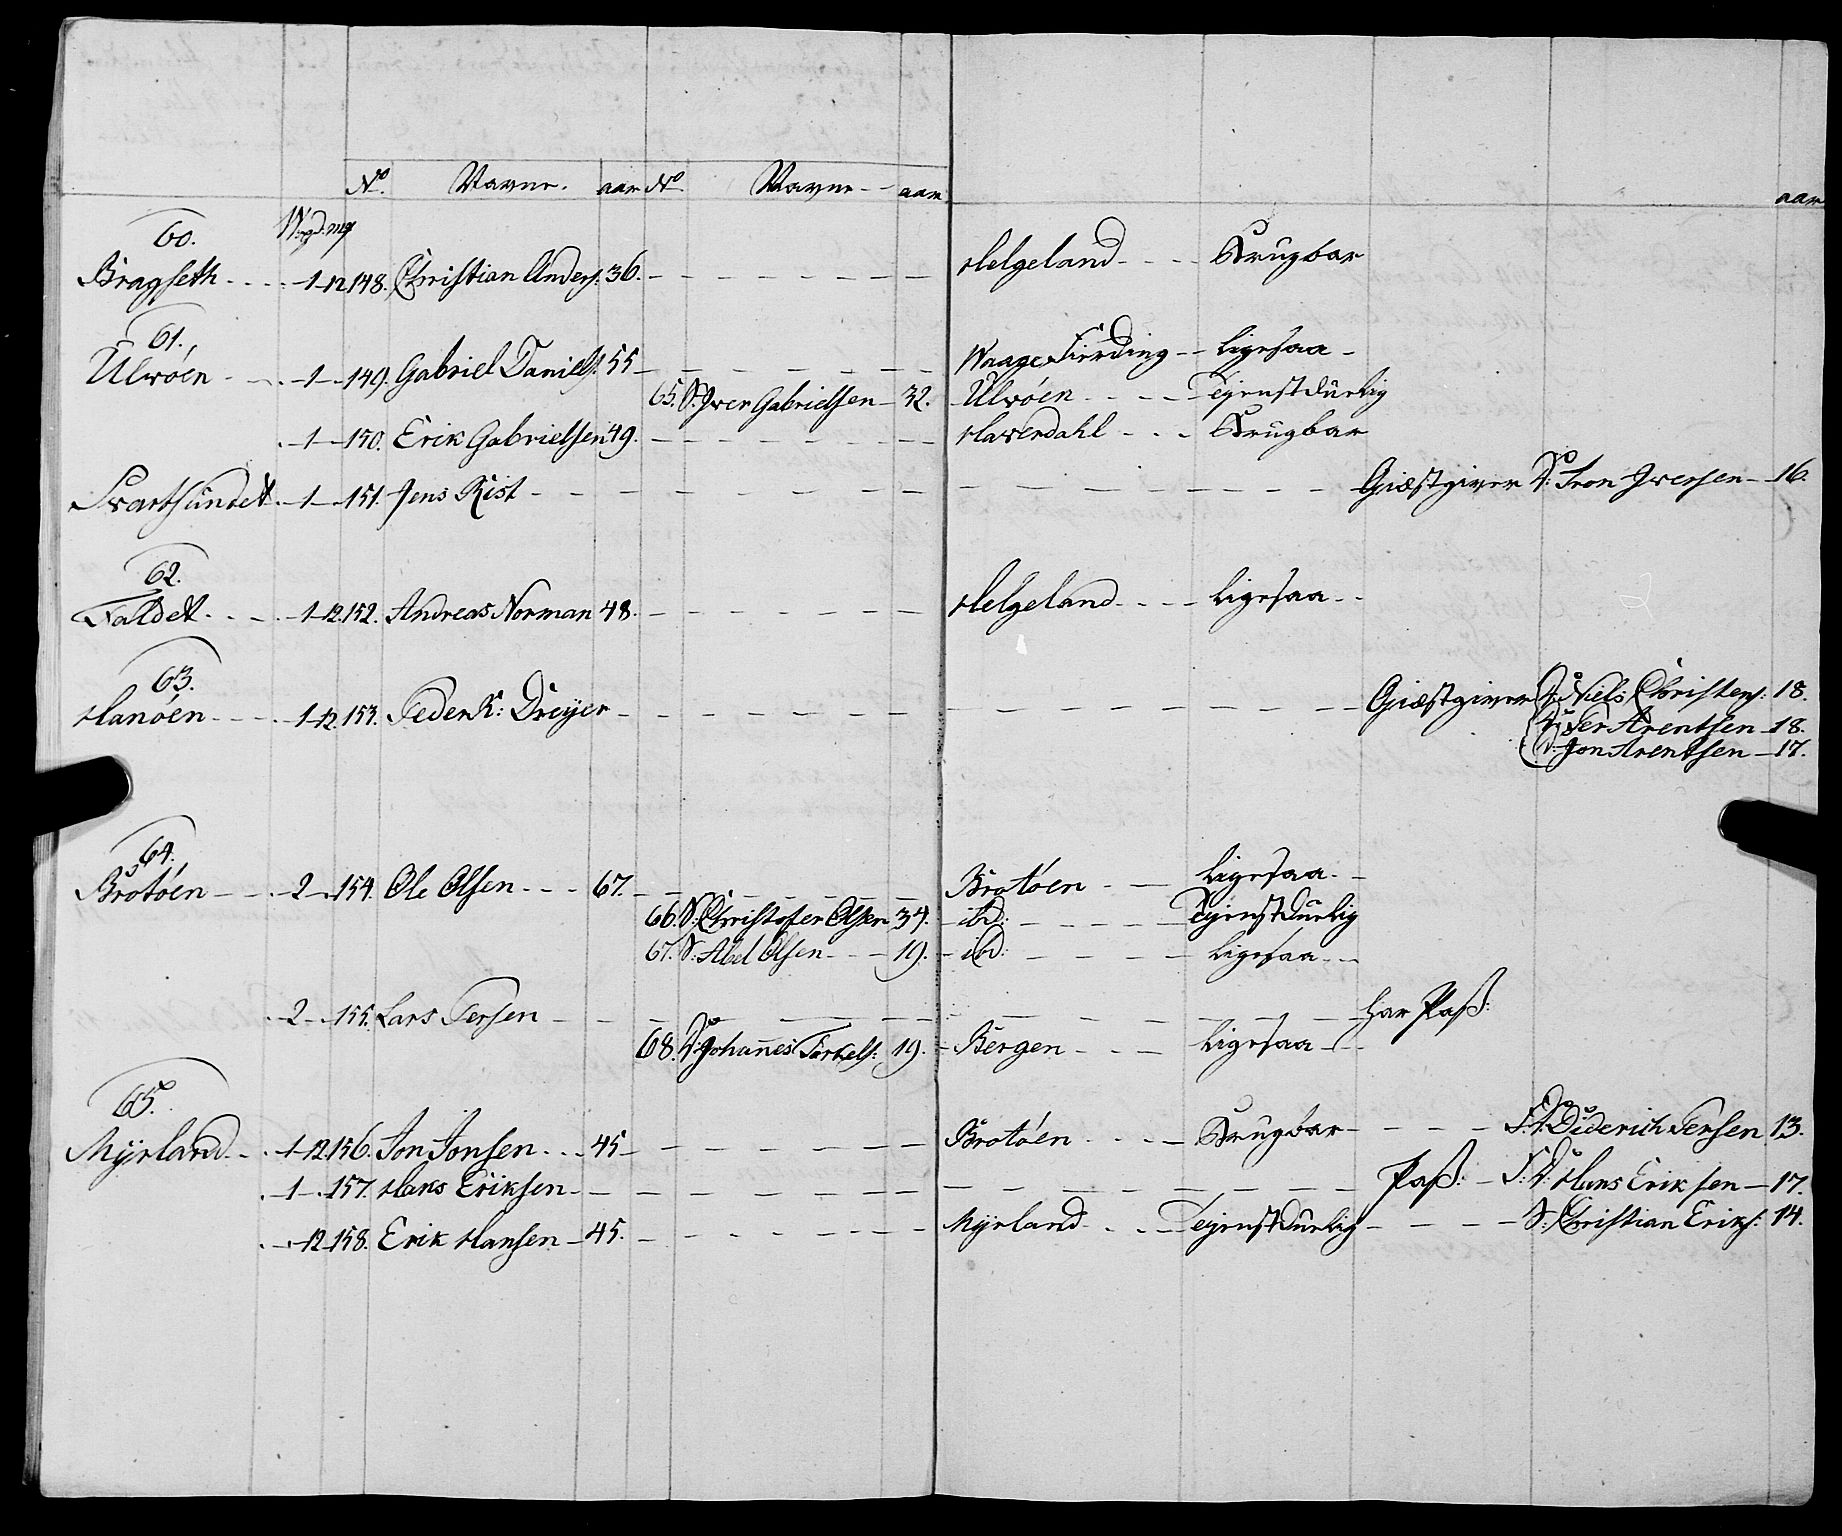 No. Navne. aar No. Navne aar aar
60. Wog. mg
Bragseth 1 12 148. Christian Anders: 36. Helgeland Brugbar
61.
Ulvöen 1 149. Gabriel Daniels: 55 Waage Fierding ligesaa
65. S. Iver Gabrielsen 32. Ulvöen Tjenstdürlig
1 150. Erik Gabrielsen 49. Haverdahl Brugbar
Svartsundet 1 151. Jens Rist Giæstgiver D: Tron Iversen 16.
62.
Faldet 1 12. 152. Andreas Norman 48. Helgeland ligesaa
63.
Hanöen 1 12. 153. Peder K: Dreyer Giæstgiver D: Niels Christens: 18.
D: Per Arentsen 18.
D: Jon Arentsen 17.
64.
Brotöen 2 154. Ole Olsen 67. Brotöen ligesaa
66. S: Christofer Olsen 34. ibd: Tjenstdürlig
67. S: Abel Olsen 19. ibd: ligesaa
2 155. Lars Persen har Paß:
68. D: Johannes Torkels: 19. Bergen ligesaa
65.
Myrland 1 12 156. Jon Jonsen 45 Brotöen Brugbar F. D: Diderich Persen 13.
1 157. Hans Eriksen Paß: F: D: Hans Eriksen 17.
12 158. Erik Hansen 45. Myrland Tjenstdürlig S: Christian Eriks: 14.